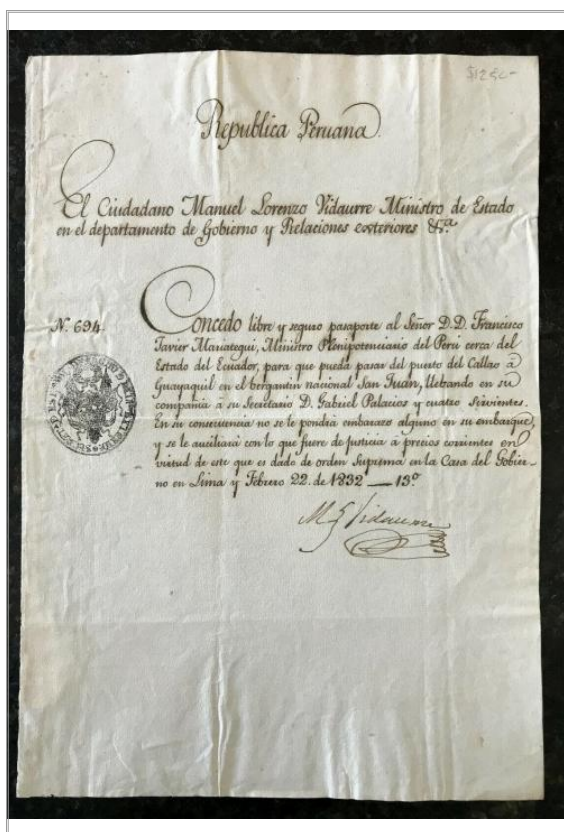 $1250-
Republica Peruana
El Ciudadano Manuel Lorenzo Vidaurre Ministro de Estado
en el departamento de Gobierno y Relaciones exteriores &.ª
N. 694
Concedo libre y seguro pasaporte al Señor D.D. Francisco
Javier Mariategui, Ministro Plenipotenciario del Perú cerca del
Estado del Ecuador, para que pueda pasar del puerto del Callao á
Guayaquil en el bergantin nacional San Juan, llebando en su
compañia á su Secretario D. Gabriel Palacios y cuatro sirvientes.
En su consecuencia no se le pondra embarazo alguno en su embarque,
y se le auxiliará con lo que fuere de justicia á precios corrientes en
virtud de este que es dado de orden Suprema en la Casa del Gobier-
no en Lima y Febrero 22. de 1832 — 13º
M L Vidaurre